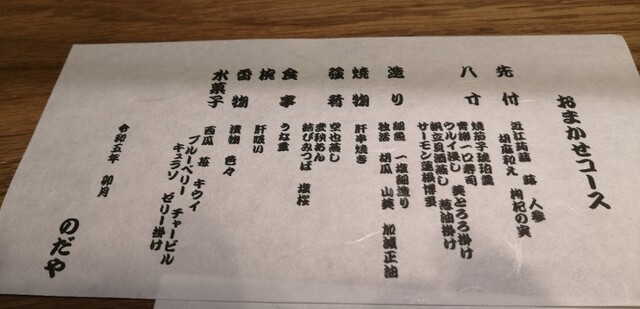 おまかせコース
先付
近江蒟蒻 蕗 人参
胡麻和え 枸杞の実
八寸
焼茄子琥珀羹
青柳一口寿司
ウルイ浸し 美とろろ掛け
帆立貝酒蒸し 葱油掛け
サーモン蓮根博多
造り
鮮魚 一塩鮮造り
独活 胡瓜 山葵 加減正油
焼物
肝串焼き
強肴
空也蒸し
麦秧あん
結びみつば 塩桜
食事
うな重
椀
肝吸い
香物
漬物 色々
水菓子
西瓜 苺 キウイ
ブルーベリー チャービル
キュラソ ゼリー掛け
令和五年 卯月
のだや